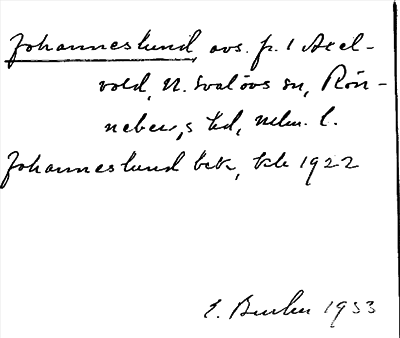 Johanneslund, avs. fr. 1 Axel-
vold, N. Svalövs sn, Rön-
nebergs hd, Mlm. l.
Johanneslund bek, kle 1922
E. 1933